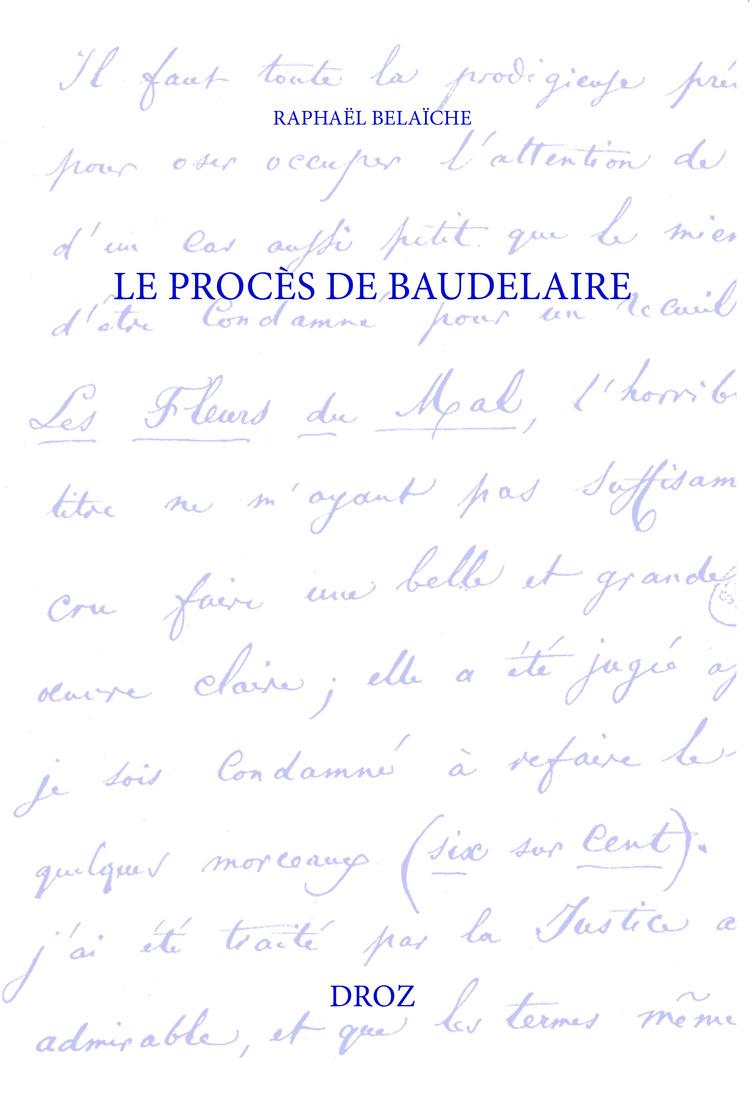 Il faut toute la prodigieuse pré
RAPHAËL BELAÏCHE
pour oser occuper l'attention de
d'un cas aussi petit que le mien
LE PROCÈS DE BAUDELAIRE
d'être Condamné pour un recueil
Les Fleurs du Mal, l'horrib
titre ne m'ayant pas suffisam
cru faire une belle et grande
œuvre claire ; elle a été jugée
je sois Condamné à refaire le
quelques morceaux (six sur Cent).
j'ai été traité par la Justice a
DROZ
admirable, et que les termes même